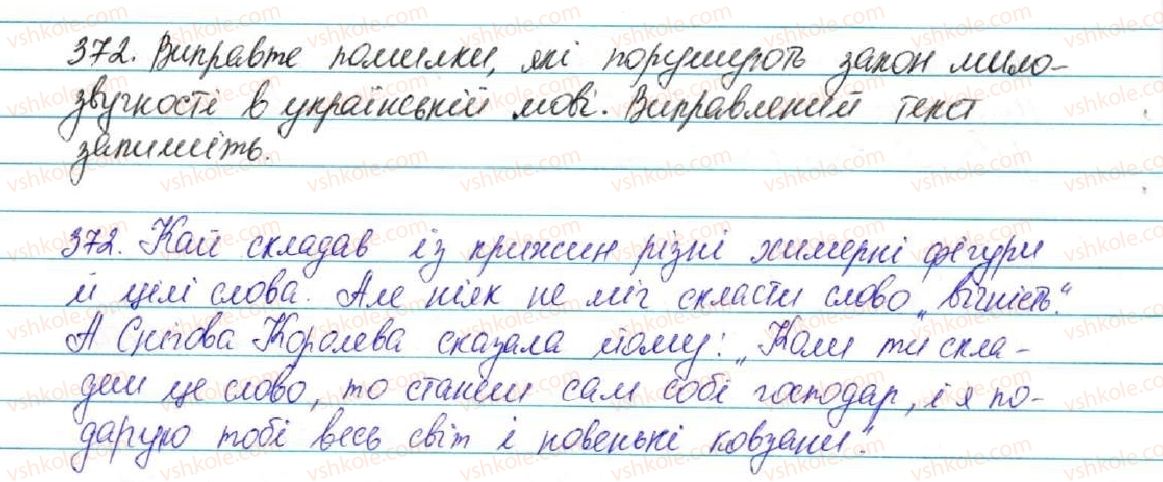 372. Виправте помилки, які порушують закон мило-
звучності в українській мові. Виправлений текст
запишіть.
372. Кай складав із крижин різні химерні фігури
й цілі слова. Але ніяк не міг скласти слово „вічність“.
А Снігова Королева сказала йому: „Коли ти скла-
деш це слово, то станеш сам собі господар, і я по-
дарую тобі весь світ і новенькі ковзани“.